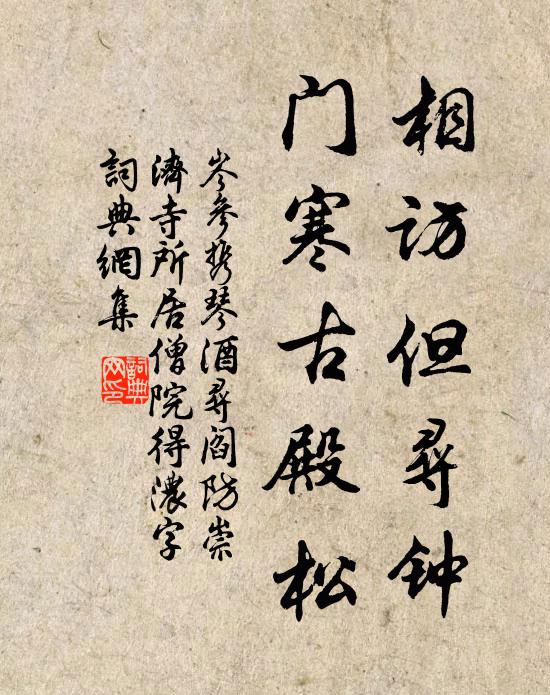 相访但寻钟
门寒古殿松
岑参携琴酒寻阎防崇
濟寺所居僧院得濃字
詞典網集
詞典网印